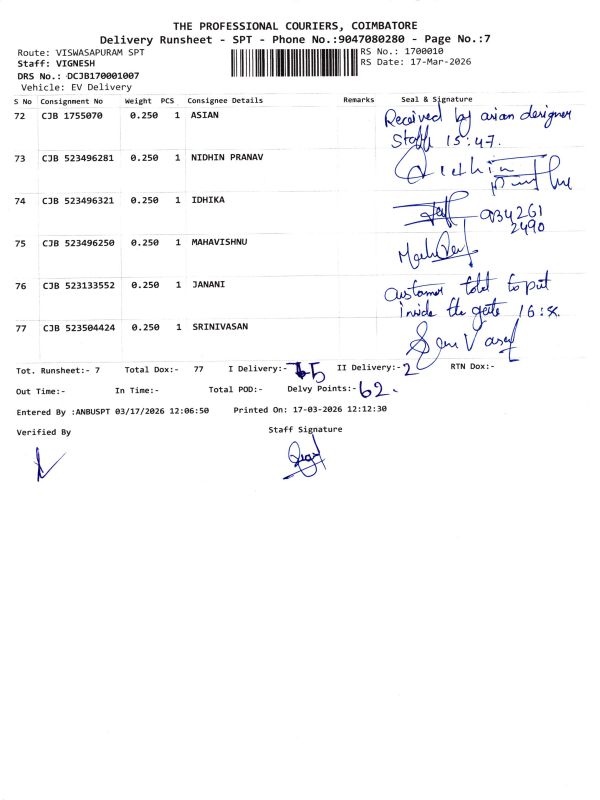 THE PROFESSIONAL COURIERS, COIMBATORE
Delivery Runsheet - SPT - Phone No.:9047080280 - Page No.:7
Route: VISWASAPURAM SPT
RS No.: 1700010
Staff: VIGNESH
RS Date: 17-Mar-2026
DRS No.: DCJB170001007
Vehicle: EV Delivery
S No Consignment No Weight PCS Consignee Details Remarks Seal & Signature
72 CJB 1755070 0.250 1 ASIAN Received by asian designer
Staff 15:47.
73 CJB 523496281 0.250 1 NIDHIN PRANAV Nidhin
74 CJB 523496321 0.250 1 IDHIKA 934261
2490
75 CJB 523496250 0.250 1 MAHAVISHNU
76 CJB 523133552 0.250 1 JANANI Customer told to put
inside the gate
77 CJB 523504424 0.250 1 SRINIVASAN
Tot. Runsheet:- 7 Total Dox:- 77 I Delivery:- II Delivery:-2 RTN Dox:-
Out Time:- In Time:- Total POD:- Delvy Points:- 62.
Entered By :ANBUSPT 03/17/2026 12:06:50 Printed On: 17-03-2026 12:12:30
Verified By Staff Signature